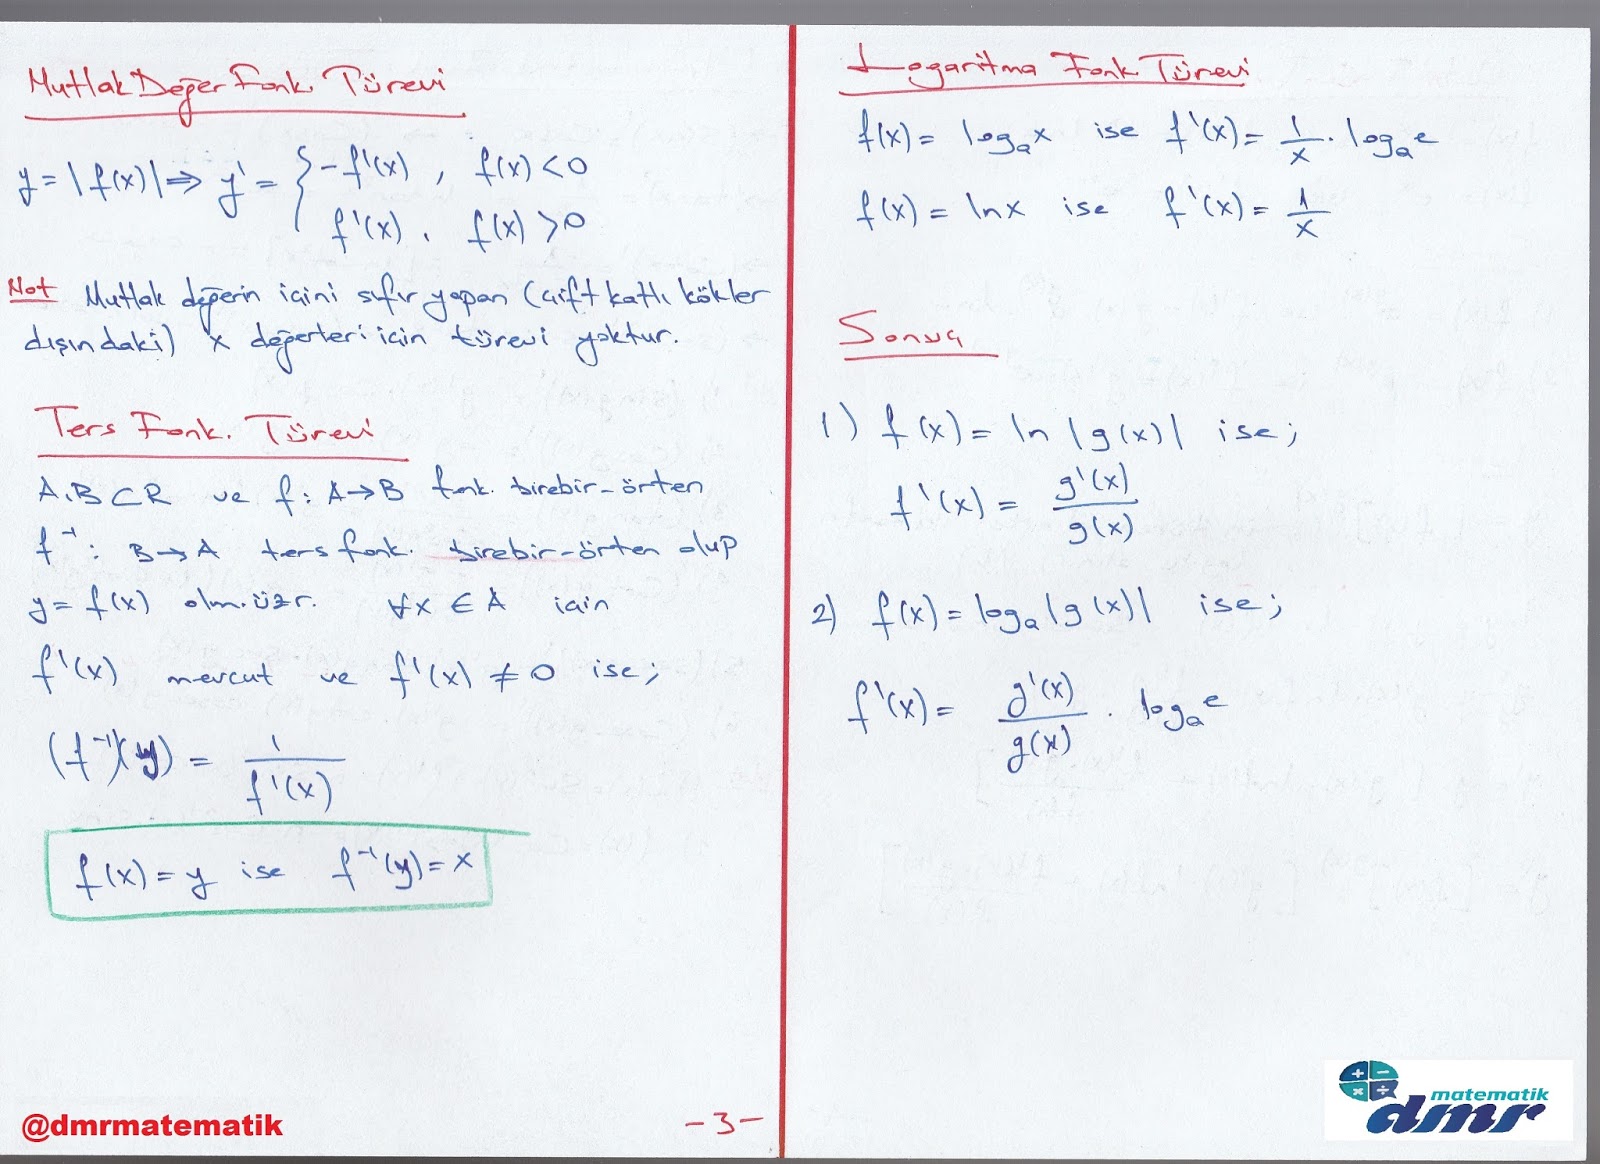 Mutlak Değer Fonk. Türevi
y = |f(x)| ⇒ y' = { -f'(x) , f(x) < 0
f'(x) , f(x) > 0
Not Mutlak değerin içini sıfır yapan (çift katlı kökler
dışındaki) x değerleri için türevi yoktur.
Ters Fonk. Türevi
A,B ⊂ R ve f: A→B fonk. birebir-örten
f⁻¹: B→A ters fonk. birebir-örten olup
y = f(x) olm. üzr. ∀x ∈ A için
f'(x) mevcut ve f'(x) ≠ 0 ise;
(f⁻¹)'(y) = 1 / f'(x)
f(x) = y ise f⁻¹(y) = x
Logaritma Fonk Türevi
f(x) = logₐx ise f'(x) = 1/x · logₐe
f(x) = lnx ise f'(x) = 1/x
Sonuç
1) f(x) = ln |g(x)| ise;
f'(x) = g'(x) / g(x)
2) f(x) = logₐ|g(x)| ise;
f'(x) = g'(x) / g(x) · logₐe
@dmrmatematik
-3-
matematik
dmr